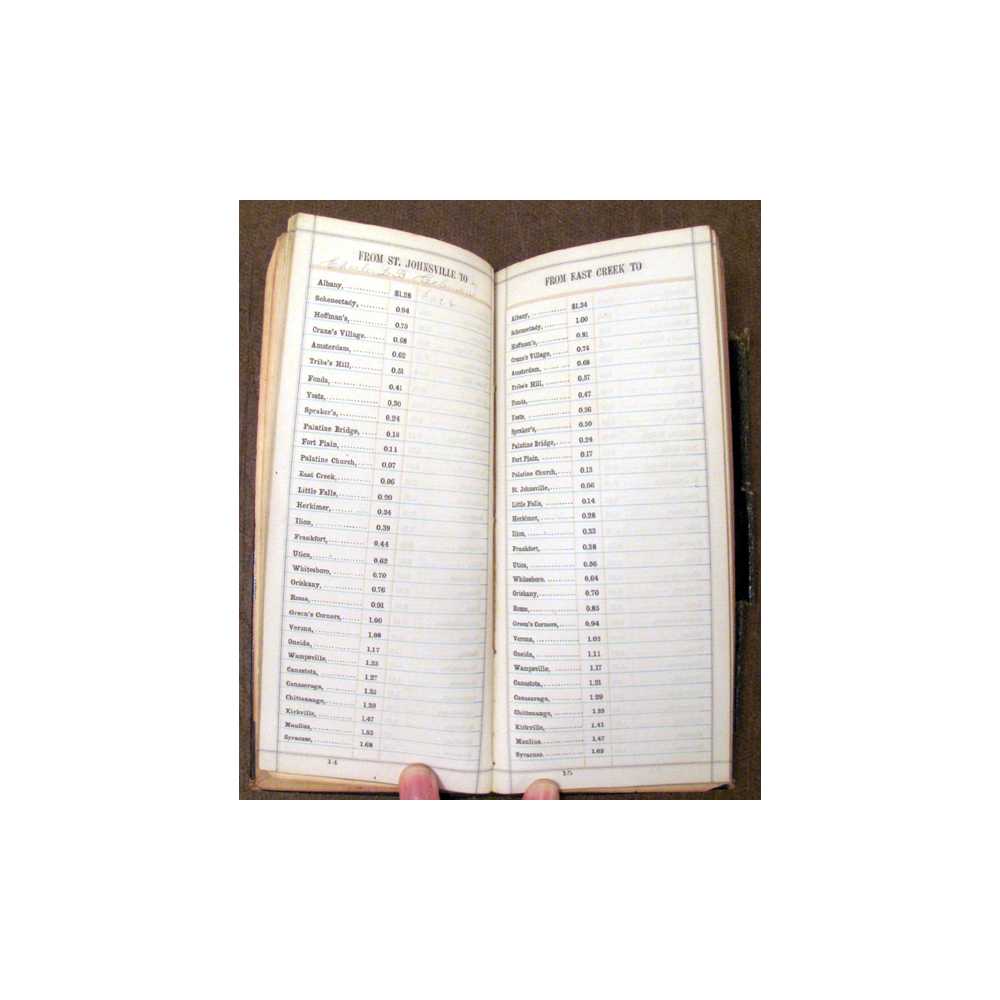 FROM ST. JOHNSVILLE TO
Albany, $1.28
Schenectady, 0.94
Hoffman's, 0.75
Crane's Village, 0.68
Amsterdam, 0.62
Tribe's Hill, 0.51
Fonda, 0.41
Yosts, 0.30
Spraker's, 0.24
Palatine Bridge, 0.18
Fort Plain, 0.11
Palatine Church, 0.07
East Creek, 0.06
Little Falls, 0.20
Herkimer, 0.34
Ilion, 0.39
Frankfort, 0.44
Utica, 0.62
Whitesboro, 0.70
Oriskany, 0.76
Rome, 0.91
Green's Corners, 1.00
Verona, 1.08
Oneida, 1.17
Wampsville, 1.23
Canastota, 1.27
Canaseraga, 1.35
Chittenango, 1.39
Kirkville, 1.47
Manlius, 1.53
Syracuse, 1.68
14
FROM EAST CREEK TO
Albany, $1.34
Schenectady, 1.00
Hoffman's, 0.81
Crane's Village, 0.74
Amsterdam, 0.68
Tribe's Hill, 0.57
Fonda, 0.47
Yosts, 0.36
Spraker's, 0.30
Palatine Bridge, 0.24
Fort Plain, 0.17
Palatine Church, 0.13
St. Johnsville, 0.06
Little Falls, 0.14
Herkimer, 0.28
Ilion, 0.33
Frankfort, 0.38
Utica, 0.56
Whitesboro. 0.64
Oriskany, 0.70
Rome, 0.85
Green's Corners, 0.94
Verona, 1.02
Oneida, 1.11
Wampsville, 1.17
Canastota, 1.21
Canaseraga, 1.29
Chittenango, 1.33
Kirkville, 1.41
Manlius. 1.47
Syracuse. 1.62
15